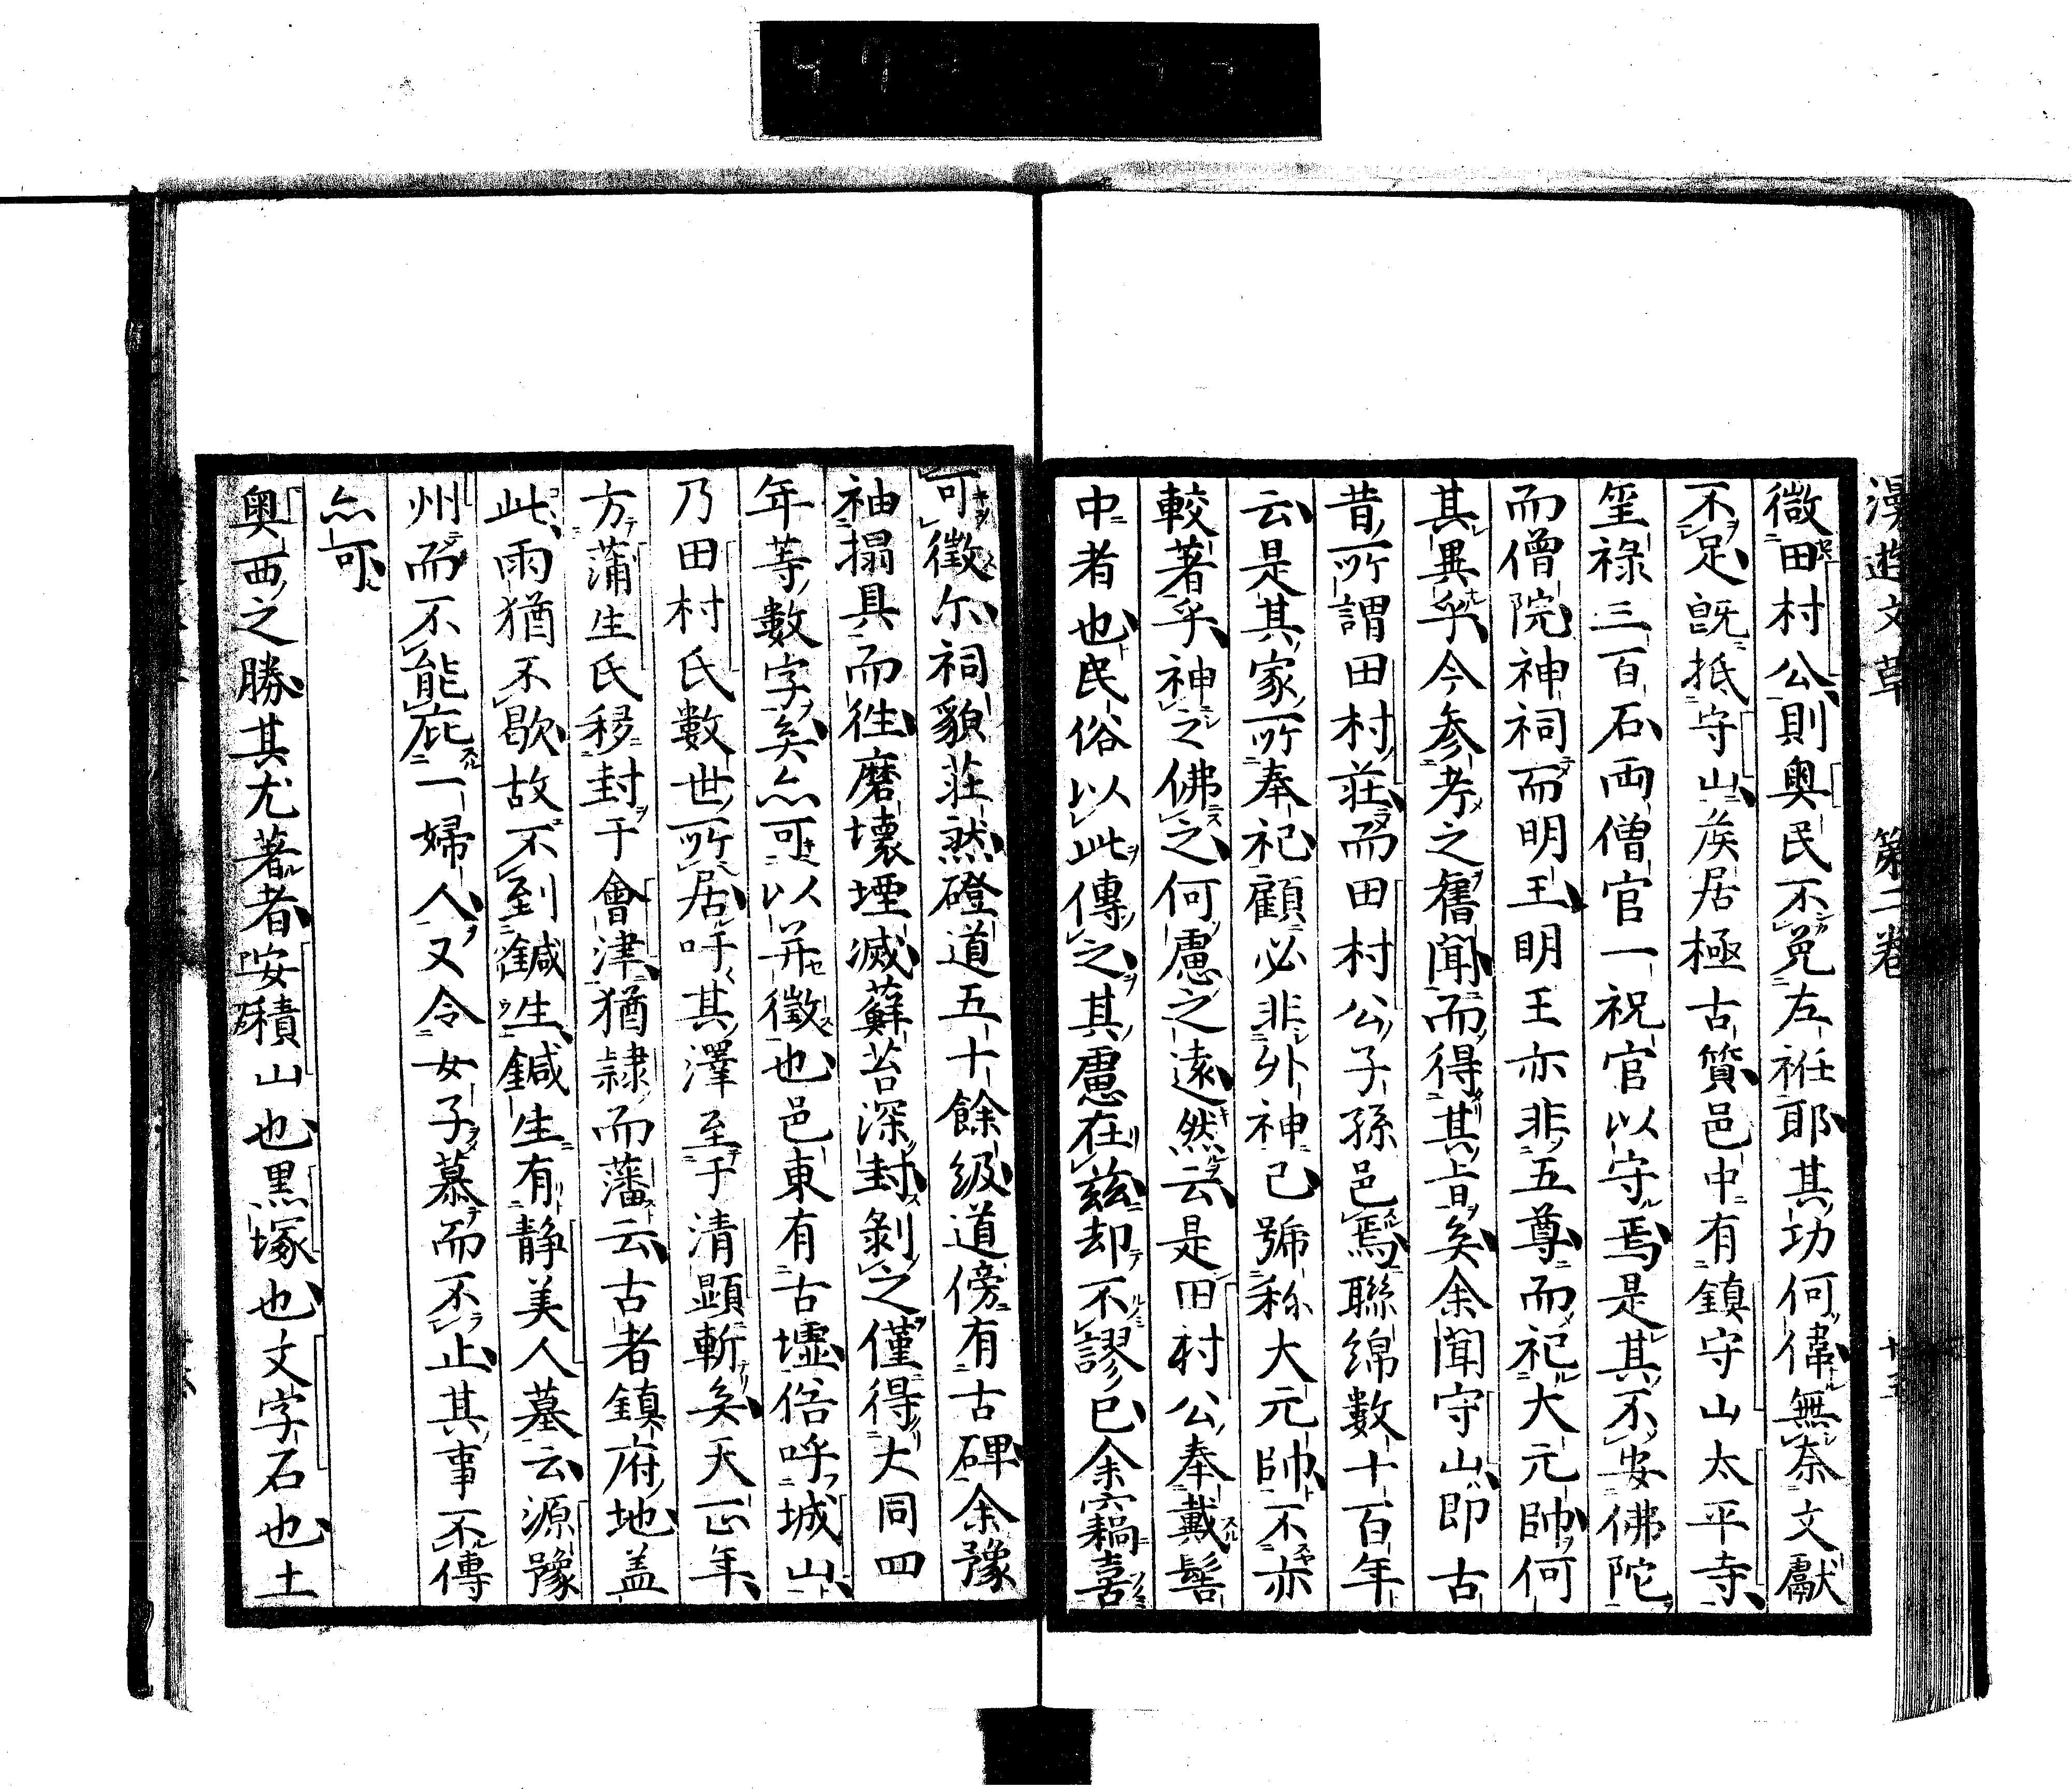 漫遊文草　第二卷　十五
微田村公則奥民不免左袵耶其功何偉無奈文獻
不足既抵守山矦居極古質邑中有鎮守山太平寺
筀祿三百石両僧官一祝官以守焉是其不安佛陀
而僧院神祠而明王明王亦非五尊而祀大元帥何
其異乎今参考之舊聞而得其旨矣余聞守山即古
昔所謂田村莊而田村公子孫邑焉聯綿數十百年
云是其家所奉祀顧必非外神已號称大元帥不亦
較著乎神之佛之何慮之遠然云是田村公奉戴髻
中者也民俗以此傳之其慮在茲却不謬已余竊喜
可徵尓祠貌莊然磴道五十餘级道傍有古碑余豫
袖搨具而徃磨壊堙滅蘚苔深封剝之僅得大同四
年等數字矣亦可以并徵也邑東有古墟俗呼城山
乃田村氏數世所居呼其澤至于清顕斬矣天正年
方蒲生氏移封于會津猶隷而藩云古者鎮府地盖
此雨猶不歇故不到鍼生鍼生有静美人墓云源豫
州而不能庇一婦人又令女子慕而不止其事不傳
亦可
奥西之勝其尤著者安積山也黒塚也文字石也土